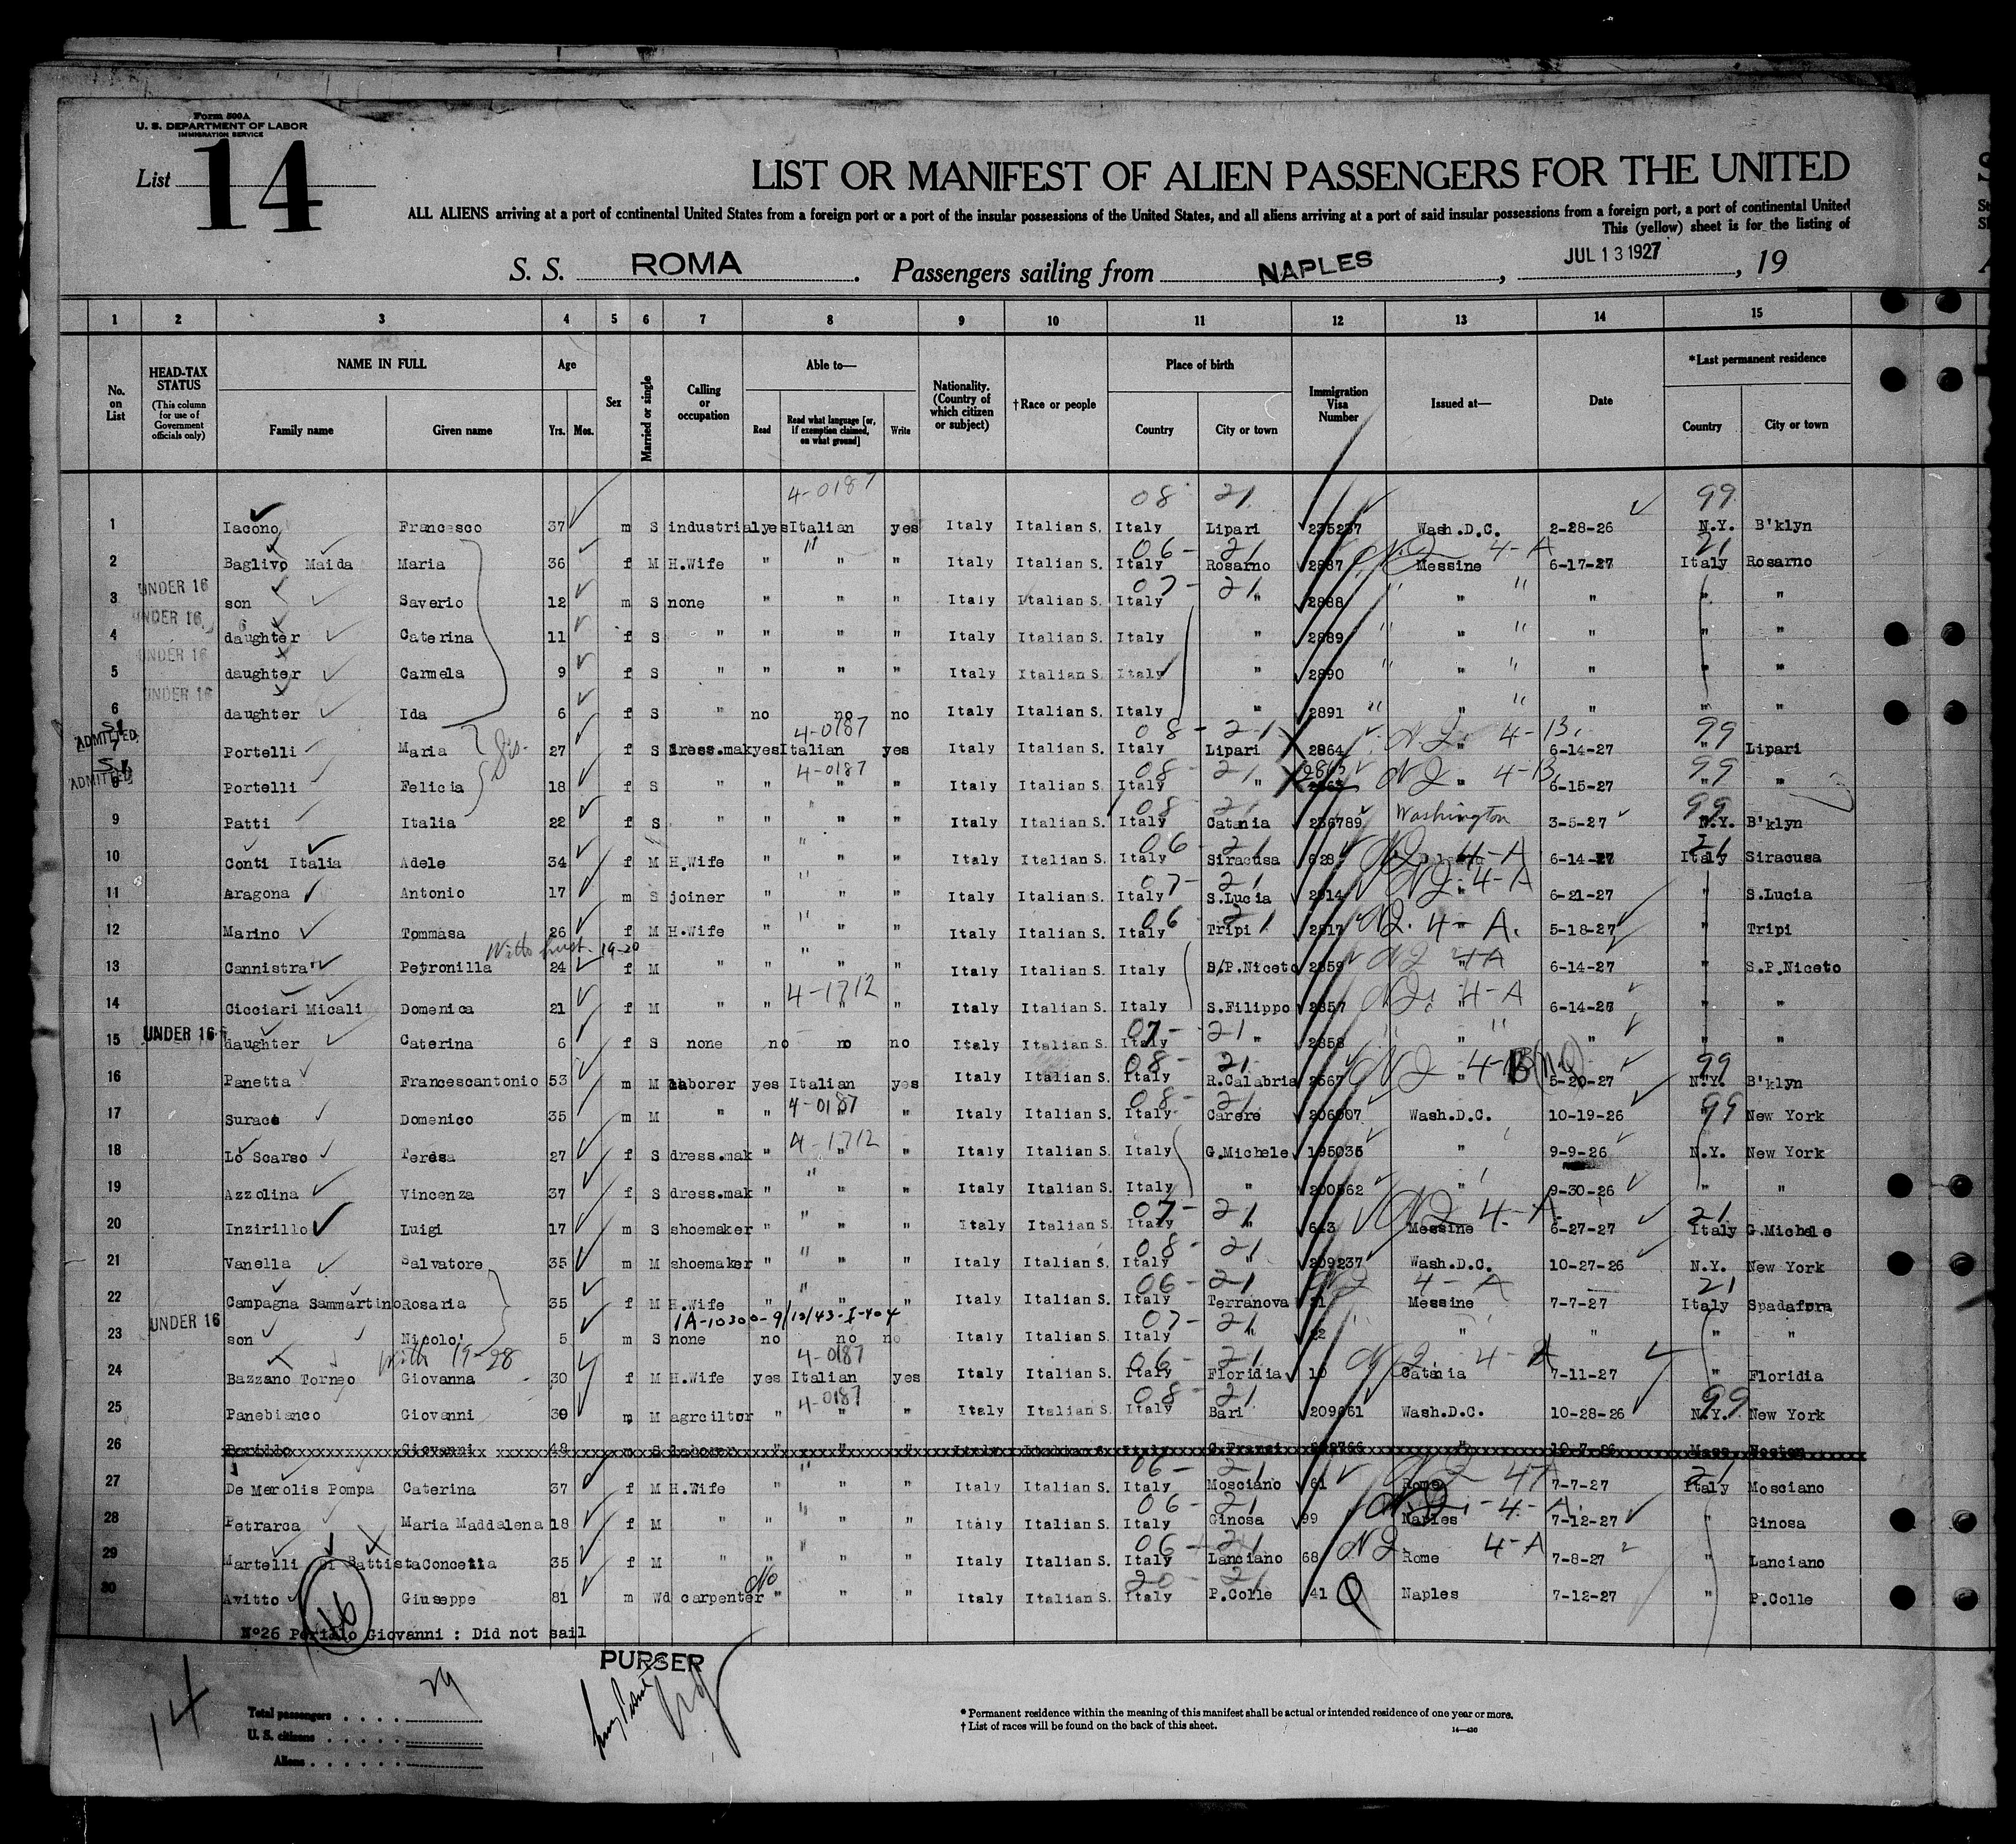 Form 500A
U. S. DEPARTMENT OF LABOR
IMMIGRATION SERVICE
List 14
LIST OR MANIFEST OF ALIEN PASSENGERS FOR THE UNITED
ALL ALIENS arriving at a port of continental United States from a foreign port or a port of the insular possessions of the United States, and all aliens arriving at a port of said insular possessions from a foreign port, a port of continental United
This (yellow) sheet is for the listing of
S. S. ROMA. Passengers sailing from NAPLES, JUL 13 1927, 19
1 2 3 4 5 6 7 8 9 10 11 12 13 14 15
No. on List
HEAD-TAX STATUS (This column for use of Government officials only)
NAME IN FULL Family name Given name
Age Yrs. Mos.
Sex
Married or single
Calling or occupation
Able to— Read Read what language [or, if exemption claimed, on what ground] Write
Nationality. (Country of which citizen or subject)
†Race or people
Place of birth Country City or town
Immigration Visa Number
Issued at—
Date
*Last permanent residence Country City or town
4-0187 08 21 99
1 Iacono Francesco 37 m S industrial yes Italian yes Italy Italian S. Italy Lipari 235237 Wash.D.C. 2-28-26 N.Y. B'klyn
" 06 - 21 4-A 21
2 Baglivo Maida Maria 36 f M H.Wife " " " Italy Italian S. Italy Rosarno 2887 Messine 6-17-27 Italy Rosarno
UNDER 16 07 - 21
3 son Saverio 12 m S none " " " Italy Italian S. Italy " 2888 " " " "
UNDER 16
4 daughter Caterina 11 f S " " " " Italy Italian S. Italy " 2889 " " " "
UNDER 16
5 daughter Carmela 9 f S " " " " Italy Italian S. Italy " 2890 " " " "
UNDER 16
6 daughter Ida 6 f S " no no no Italy Italian S. Italy " 2891 " " " "
ADMITTED 4-0187 08 - 21 4-13. 99
7 Portelli Maria 27 f S dress.mak yes Italian yes Italy Italian S. Italy Lipari 2864 " 6-14-27 " Lipari
ADMITTED 4-0187 08 - 21 4-13 99
8 Portelli Felicia 18 f S " " " " Italy Italian S. Italy " " 6-15-27 " "
" 08 21 Washington 99
9 Patti Italia 22 f S " " " " Italy Italian S. Italy Catania 236789 3-5-27 N.Y. B'klyn
" 06 - 21 4-A 21
10 Conti Italia Adele 34 f M H.Wife " " " Italy Italian S. Italy Siracusa 628 6-14-27 Italy Siracusa
" 07 - 21 4-A
11 Aragona Antonio 17 m S joiner " " " Italy Italian S. Italy S.Lucia 2914 " 6-21-27 " S.Lucia
" 06 21 4-A.
12 Marino Tommasa 26 f M H.Wife " " " Italy Italian S. Italy Tripi 2817 5-18-27 " Tripi
19-20 " 4-A
13 Cannistra' Petronilla 24 f M " " " " Italy Italian S. Italy S.P.Niceto 2859 " 6-14-27 " S.P.Niceto
4-1712 4-A
14 Cicciari Micali Domenica 21 f M " " " " Italy Italian S. Italy S.Filippo 2857 " 6-14-27 " "
UNDER 16 07 - 21
15 daughter Caterina 6 f S none no no no Italy Italian S. Italy " 2858 " " " "
08 - 21 99
16 Panetta Francescantonio 53 m M laborer yes Italian yes Italy Italian S. Italy R.Calabria 2567 " 5-20-27 N.Y. B'klyn
4-0187 08 - 21 99
17 Surace Domenico 35 m M " " " " Italy Italian S. Italy Carere 206007 Wash.D.C. 10-19-26 " New York
4-1712
18 Lo Scarso Teresa 27 f S dress.mak " " " Italy Italian S. Italy G.Michele 195035 " 9-9-26 N.Y. New York
"
19 Azzolina Vincenza 37 f S dress.mak " " " Italy Italian S. Italy " 200562 " 9-30-26 " "
" 07 - 21 4-A. 21
20 Inzirillo Luigi 17 m S shoemaker " " " Italy Italian S. Italy " 643 Messine 6-27-27 Italy G.Michele
" 08 - 21
21 Vanella Salvatore 35 m M shoemaker " " " Italy Italian S. Italy " 209237 Wash.D.C. 10-27-26 N.Y. New York
" 06 - 21 4-A 21
22 Campagna Sammartino Rosaria 35 f M H.Wife " " " Italy Italian S. Italy Terranova 21 Messine 7-7-27 Italy Spadafora
UNDER 16 1A-10300-9/10/43-I-404 07 - 21
23 son Nicolo' 5 m S none no no no Italy Italian S. Italy " 22 " " " "
With 19-28 4-0187 06 - 21 4-A
24 Bazzano Torneo Giovanna 30 f M H.Wife yes Italian yes Italy Italian S. Italy Floridia 10 Catania 7-11-27 " Floridia
4-0187 08 - 21 99
25 Panebianco Giovanni 30 m M agrciltor " " " Italy Italian S. Italy Bari 209661 Wash.D.C. 10-28-26 N.Y. New York
26 Perillo Giovanni 48 m S laborer " " " Italy Italian S. Italy " 10-7-26 Mass Boston
" 06 - 21 21
27 De Merolis Pompa Caterina 37 f M H.Wife " " " Italy Italian S. Italy Mosciano 61 Rome 7-7-27 Italy Mosciano
" 06 - 21 4-A.
28 Petrarca Maria Maddalena 18 f M " " " " Italy Italian S. Italy Ginosa 99 Naples 7-12-27 " Ginosa
" 06 21 4-A
29 Martelli Di Battista Concetta 35 f M " " " " Italy Italian S. Italy Lanciano 68 Rome 7-8-27 " Lanciano
No 20 - 21
30 Avitto Giuseppe 81 m Wd carpenter " " " Italy Italian S. Italy P.Colle 41 Naples 7-12-27 " P.Colle
N°26 Perillo Giovanni : Did not sail
16
PURSER
14
Total passengers . . . . 29
U. S. citizens . . . . .
Aliens . . . . . .
* Permanent residence within the meaning of this manifest shall be actual or intended residence of one year or more.
† List of races will be found on the back of this sheet.
14—430